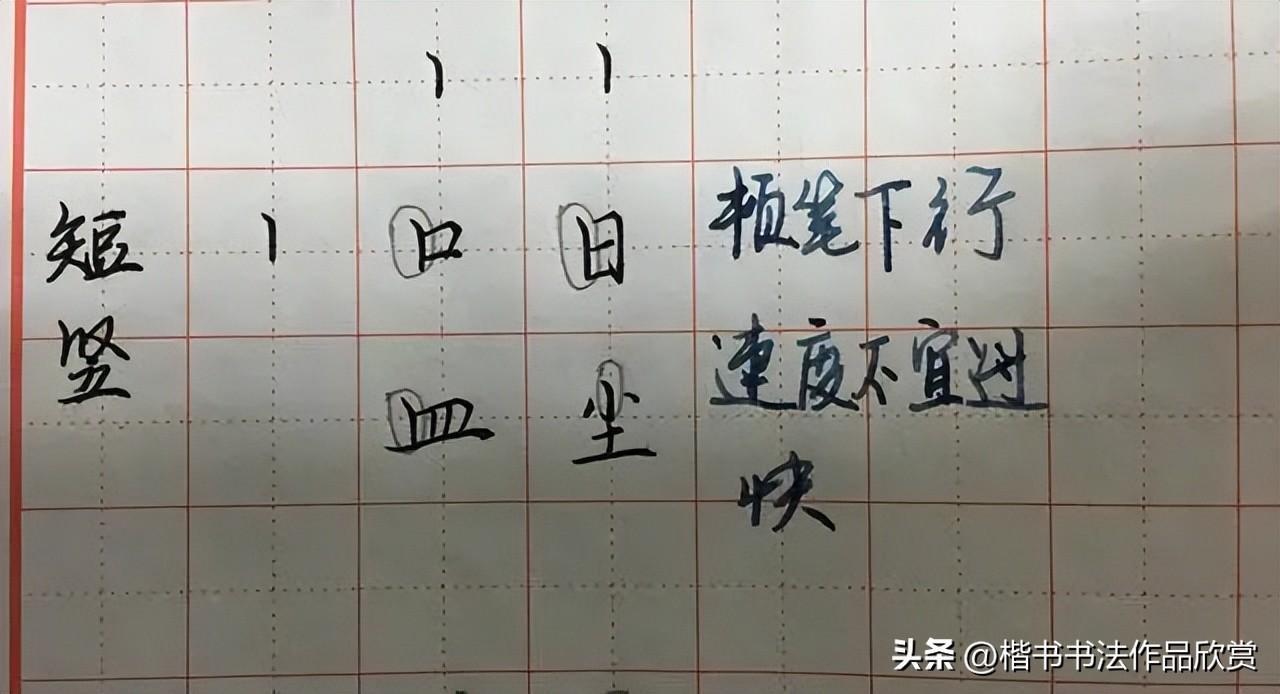 丨 丨
短 丨 口 日 顿笔下行
竖 皿 尘 速度不宜过
快
头条 @楷书书法作品欣赏